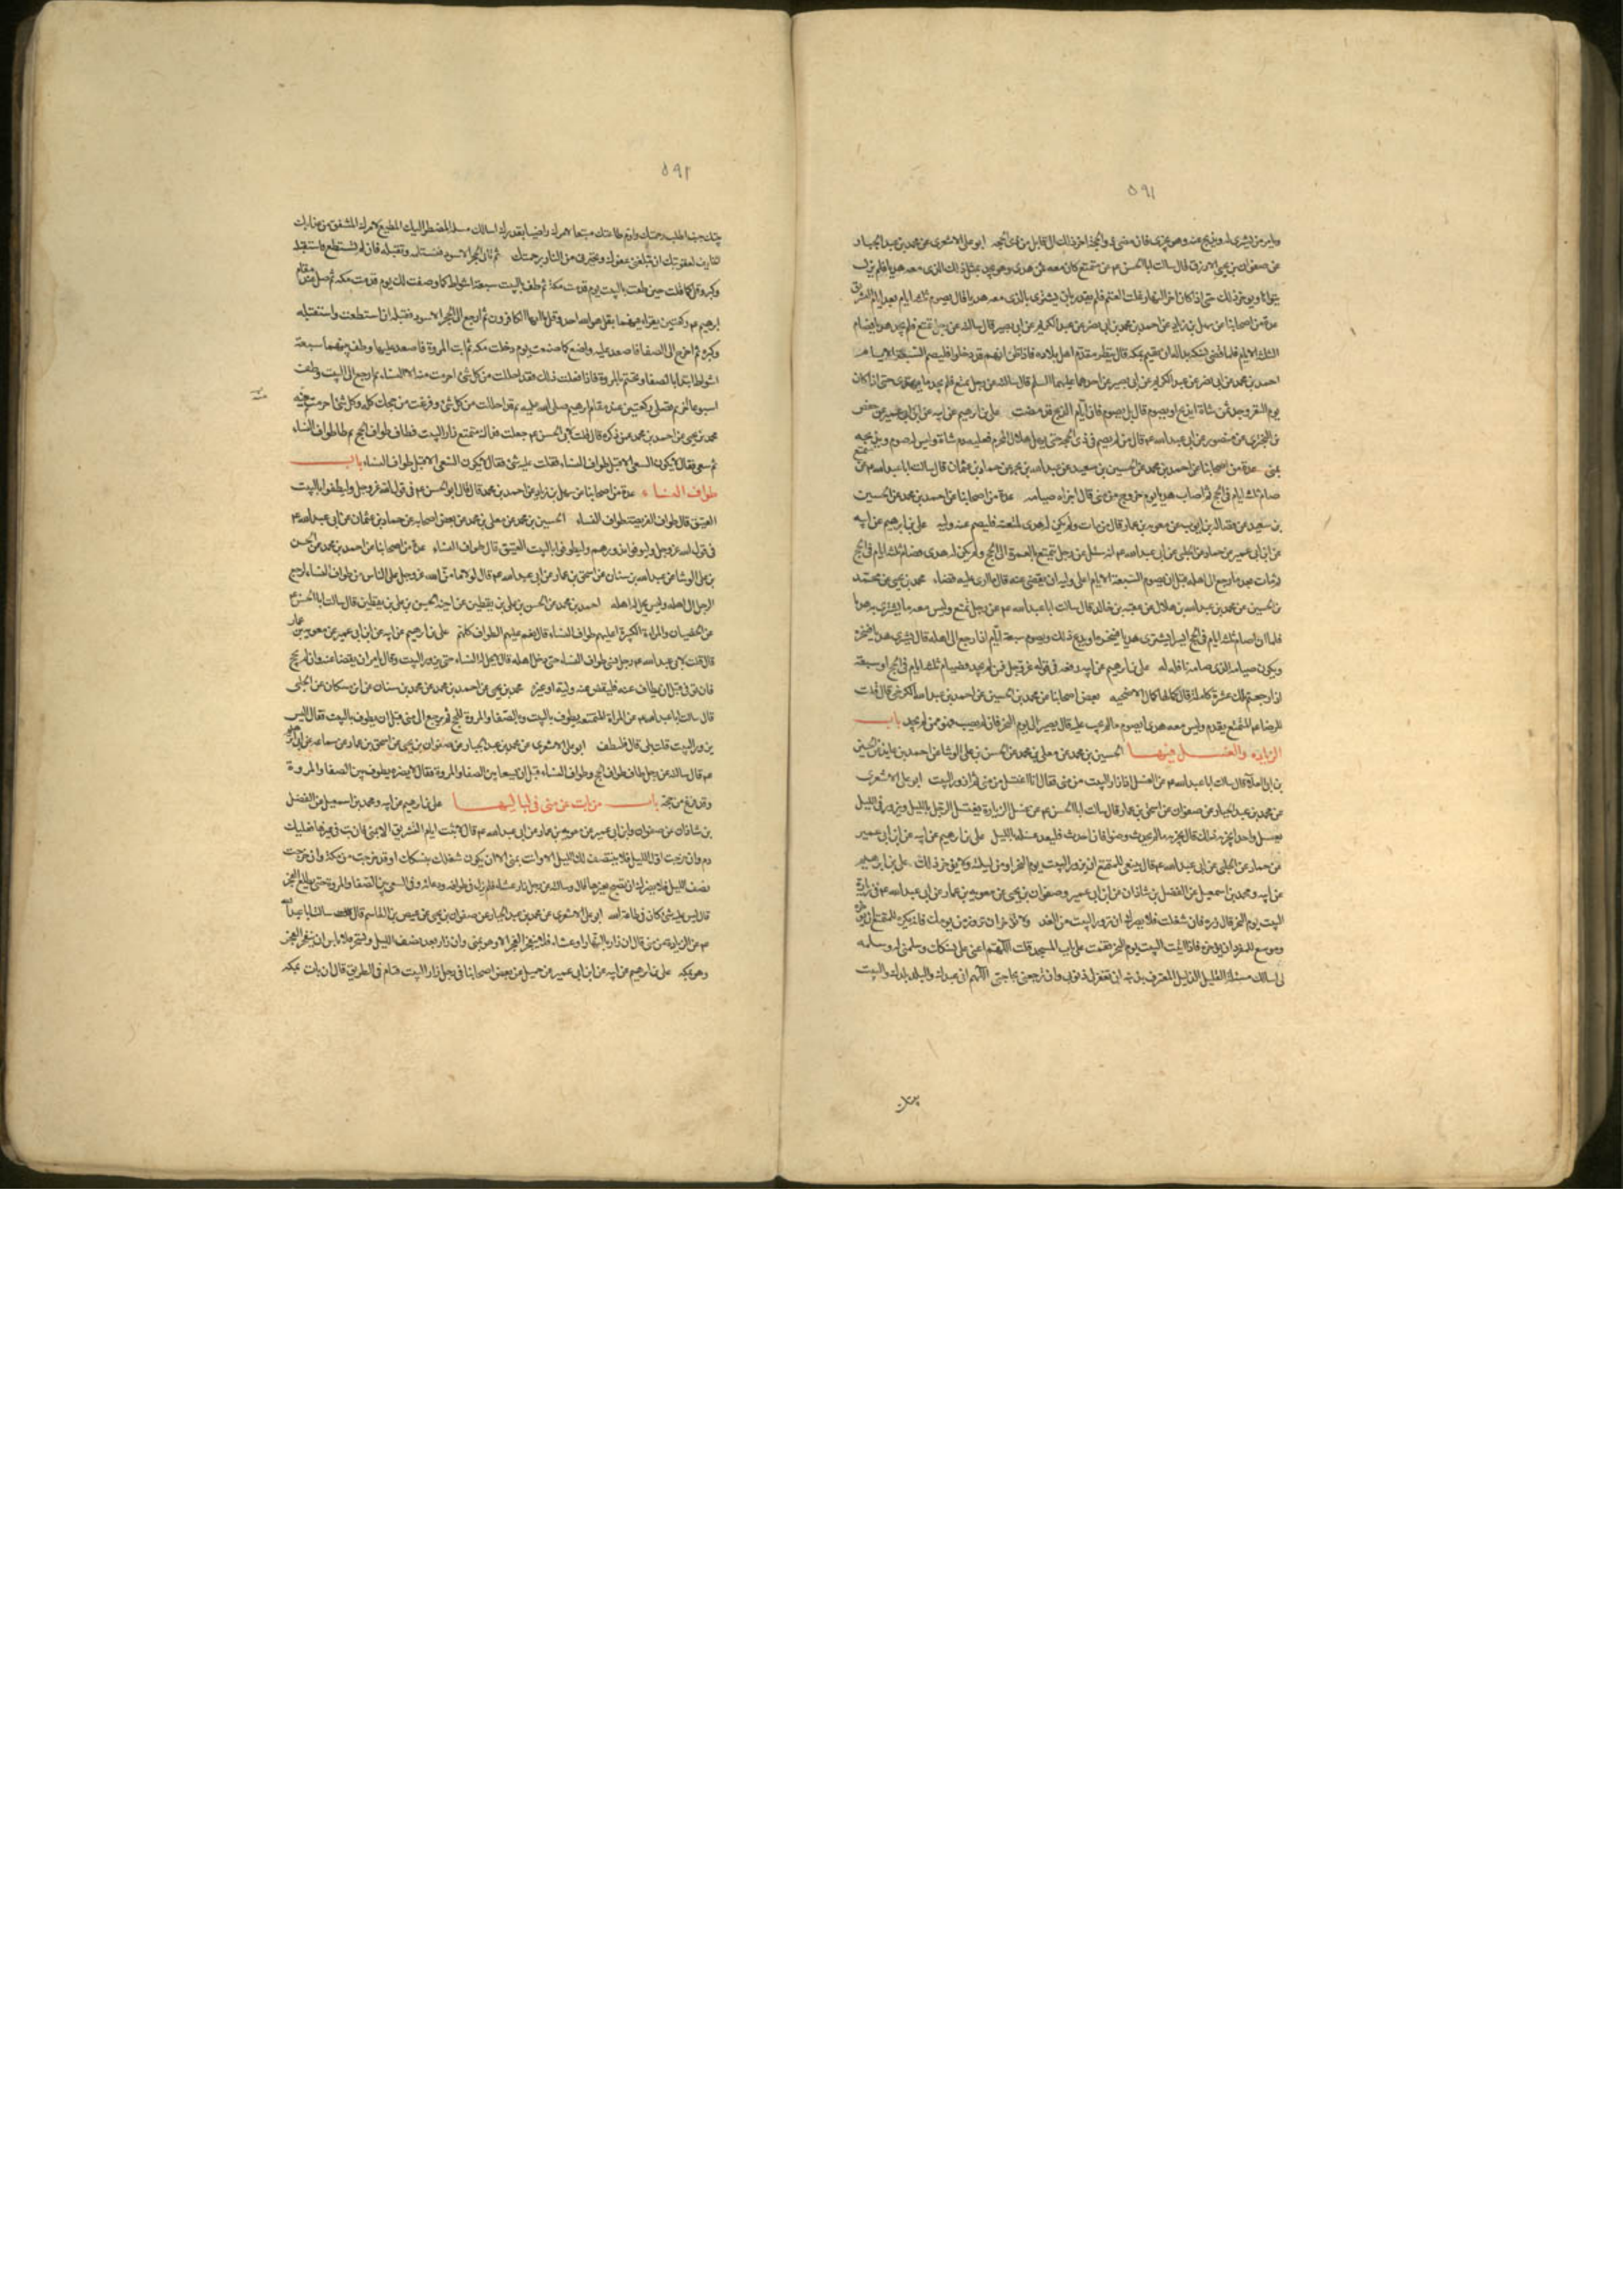 ٥٩١
وامر من يشترى له ويذبح عنه وهو يجزى عنه فان مضى ذو الحجة اخر ذلك الى قابل من ذى الحجه ابو على الاشعرى عن محمد بن عبد الجبار
عن صفوان بن يحيى الازرق قال سالت ابا الحسن ع عن متمتع كان معه ثمن هدى وهو يجد بمثل ذلك الذى معه هديا فلم يزل
يتوانا ويوخر ذلك حتى اذا كان اخر النهار غلت الغنم فلم يقدر بان يشترى بالذى معه هديا قال يصوم ثلثه ايام بعد ايام التشريق
عدة من اصحابنا عن سهل بن زياد عن احمد بن محمد بن ابى نصر عن عبد الكريم عن ابى بصير قال سالته عن رجل تمتع فلم يجد هديا فصام
الثلثه الايام فلما قضى نسكه بدا له ان يقيم بمكه قال ينتظر مقدم اهل بلاده فاذا ظن انهم قد دخلوا فليصم السبعة الايام
احمد بن محمد بن ابى نصر عن عبد الكريم عن ابى بصير عن احدهما عليهما السلم قال سالته عن رجل تمتع فلم يجد ما يهدى حتى اذا كان
يوم النفر وجد ثمن شاة ايذبح او يصوم قال بل يصوم فان ايام الذبح قد مضت على بن ابرهيم عن ابيه عن ابن ابى عمير عن حفص
بن البخترى عن منصور عن ابى عبد الله ع قال من لم يصم فى ذى الحجه حتى يهل هلال المحرم فعليه دم شاة وليس له صوم ويذبحه
بمنى عدة من اصحابنا عن احمد بن محمد عن الحسين بن سعيد عن عبد الله بن بحر عن حماد بن عثمان قال سالت ابا عبد الله ع عن متمتع
صام ثلثه ايام فى الحج ثم اصاب هديا يوم خروجه من منى قال اجزاه صيامه عدة من اصحابنا عن احمد بن محمد عن الحسين
بن سعيد عن فضاله بن ايوب عن معويه بن عمار قال من مات ولم يكن له هدى لمتعته فليصم عنه وليه على بن ابرهيم عن ابيه
عن ابن ابى عمير عن حماد عن الحلبى عن ابى عبد الله ع انه سئل عن رجل تمتع بالعمرة الى الحج ولم يكن له هدى فصام ثلثه ايام فى الحج
ثم مات بعد ما رجع الى اهله قبل ان يصوم السبعة الايام اعلى وليه ان يقضى عنه قال ما ارى عليه قضاء محمد بن يحيى عن محمد
بن الحسين عن محمد بن عبد الله بن هلال عن عقبه بن خالد قال سالت ابا عبد الله ع عن رجل تمتع وليس معه ما يشترى به هديا
فلما ان صام ثلثه ايام فى الحج ايسر ايشترى هديا فينحره او يدع ذلك ويصوم سبعة ايام اذا رجع الى اهله قال يشترى هديا فينحره
ويكون صيامه الذى صامه نافله له على بن ابرهيم عن ابيه رفعه فى قوله عز وجل فمن لم يجد فصيام ثلثه ايام فى الحج وسبعة
اذا رجعتم تلك عشرة كاملة قال كمالها كمال الاضحيه بعض اصحابنا عن محمد بن الحسين عن احمد بن عبد الله الكرخى قال قلت
للرضا ع المتمتع يقدم وليس معه هدى ايصوم ما لم يجب عليه قال يصبر الى يوم النحر فان لم يصب فهو ممن لم يجد باب
الزيارة والغسل فيها الحسين بن محمد عن معلى بن محمد عن الحسن بن على الوشا عن احمد بن عايذ عن الحسين
بن ابى العلا قال سالت ابا عبد الله ع عن الغسل اذا زار البيت من منى فقال انا اغتسل من منى ثم ازور البيت ابو على الاشعرى
عن محمد بن عبد الجبار عن صفوان عن اسحق بن عمار قال سالت ابا الحسن ع عن غسل الزيارة يغتسل الرجل بالليل ويزور فى الليل
بغسل واحد ايجزيه ذلك قال يجزيه ما لم يحدث وضوا فان احدث فليعد غسله بالليل على بن ابرهيم عن ابيه عن ابن ابى عمير
عن حماد عن الحلبى عن ابى عبد الله ع قال ينبغى للمتمتع ان يزور البيت يوم النحر او من ليلته ولا يوخر ذلك على بن ابرهيم
عن ابيه ومحمد بن اسمعيل عن الفضل بن شاذان عن ابن ابى عمير وصفوان بن يحيى عن معويه بن عمار عن ابى عبد الله ع فى زيارة
البيت يوم النحر قال زره فان شغلت فلا يضرك ان تزور البيت من الغد ولا توخر ان تزور من يومك فانه يكره للمتمتع ان يوخره
وموسع للمفرد ان يوخره فاذا اتيت البيت يوم النحر فقمت على باب المسجد قلت اللهم اعنى على نسكك وسلمنى له وسلمه
لى اسالك مسئلة العليل الذليل المعترف بذنبه ان تغفر لى ذنوبى وان ترجعنى بحاجتى اللهم انى عبدك والبلد بلدك والبيت
بيتك
٥٩١
جئتك اطلب رحمتك واوم طاعتك متبعا لامرك راضيا بقدرك اسالك مسئلة المضطر اليك المطيع لامرك المشفق من عذابك
الخايف لعقوبتك ان تبلغنى عفوك وتجيرنى من النار برحمتك ثم تاتى الحجر الاسود فتستلمه وتقبله فان لم تستطع فاستقبله
وكبر وقل كما قلت حين طفت بالبيت يوم قدمت مكه ثم طف بالبيت سبعة اشواط كما وصفت لك يوم قدمت مكه ثم صل عند مقام
ابرهيم ع ركعتين تقرا فيهما بقل هو الله احد وقل يا ايها الكافرون ثم ارجع الى الحجر الاسود فقبله ان استطعت واستقبله
وكبر ثم اخرج الى الصفا فاصعد عليه واصنع كما صنعت يوم دخلت مكه ثم ايت المروة فاصعد عليها وطف بينهما سبعة
اشواط تبدا بالصفا وتختم بالمروة فاذا فعلت ذلك فقد احللت من كل شئ احرمت منه الا النساء ثم ارجع الى البيت وطف به
اسبوعا اخر ثم تصلى ركعتين عند مقام ابرهيم صلى الله عليه ثم قد احللت من كل شئ وفرغت من حجك كله وكل شئ احرمت منه
محمد بن يحيى عن احمد بن محمد عمن ذكره قال قلت لابى الحسن ع جعلت فداك متمتع زار البيت فطاف طواف الحج ثم طاف طواف النساء
ثم سعى فقال لا يكون السعى الا قبل طواف النساء فقلت عليه شئ فقال لا يكون السعى الا قبل طواف النساء باب
طواف النساء عدة من اصحابنا عن سهل بن زياد عن احمد بن محمد قال قال ابو الحسن ع فى قول الله عز وجل وليطوفوا بالبيت
العتيق قال طواف الفريضة طواف النساء الحسين بن محمد عن معلى بن محمد عن بعض اصحابه عن حماد بن عثمان عن ابى عبد الله ع
فى قول الله عز وجل وليوفوا نذورهم وليطوفوا بالبيت العتيق قال طواف النساء عدة من اصحابنا عن احمد بن محمد عن الحسن
بن على الوشا عن عبد الله بن سنان عن اسحق بن عمار عن ابى عبد الله ع قال لولا ما من الله عز وجل على الناس من طواف النساء لرجع
الرجل الى اهله وليس يحل له اهله احمد بن محمد عن الحسن بن على بن يقطين عن اخيه الحسين بن على بن يقطين قال سالت ابا الحسن ع
عن الخصيان والمراة الكبيرة اعليهم طواف النساء قال نعم عليهم الطواف كلهم على بن ابرهيم عن ابيه عن ابن ابى عمير عن معويه بن عمار
قال قلت لابى عبد الله ع رجل نسى طواف النساء حتى دخل اهله قال لا يحل له النساء حتى يزور البيت وقال يامر ان يقضا عنه وان لم يحج
فان توفى قبل ان يطاف عنه فليقض عنه وليه او غيره محمد بن يحيى عن احمد بن محمد عن محمد بن سنان عن ابن مسكان عن الحلبى
قال سالت ابا عبد الله ع عن المراة المتمتعه يطوف بالبيت وبالصفا والمروة للحج ثم يرجع الى منى قبل ان يطوف بالبيت فقال اليس
يزور البيت قلت بلى قال فلتطف ابو على الاشعرى عن محمد بن عبد الجبار عن صفوان بن يحيى عن اسحق بن عمار عن سماعه عن ابى ابرهيم
ع قال سالته عن رجل طاف طواف الحج وطواف النساء قبل ان يسعا بين الصفا والمروة فقال لا يضره يطوف بين الصفا والمروة
وقد فرغ من حجه باب من بات عن منى فى لياليها على بن ابرهيم عن ابيه ومحمد بن اسمعيل عن الفضل
بن شاذان عن صفوان وابن ابى عمير عن معويه بن عمار عن ابى عبد الله ع قال لا تبت ايام التشريق الا بمنى فان بت فى غيرها فعليك
دم وان خرجت اول الليل فلا ينتصف لك الليل الا وانت بمنى الا ان يكون شغلك بنسكك او قد خرجت من مكة وان خرجت
نصف الليل فلا يضرك ان تصبح بغيرها قال وسالته عن رجل زار عشاء فلم يزل فى طوافه ودعائه وفى السعى بين الصفا والمروة حتى يطلع الفجر
قال ليس عليه شئ كان فى طاعة الله ابو على الاشعرى عن محمد بن عبد الجبار عن صفوان بن يحيى عن عيص بن القاسم قال سالت ابا عبد الله
ع عن الزيارة من منى قال ان زار بالنهار او عشاء فلا ينفجر الفجر الا وهو بمنى وان زار بعد نصف الليل والسحر فلا باس ان ينفجر الفجر
وهو بمكه على بن ابرهيم عن ابيه عن ابن ابى عمير عن جميل عن بعض اصحابنا فى رجل زار البيت فنام فى الطريق قال ان بات بمكه